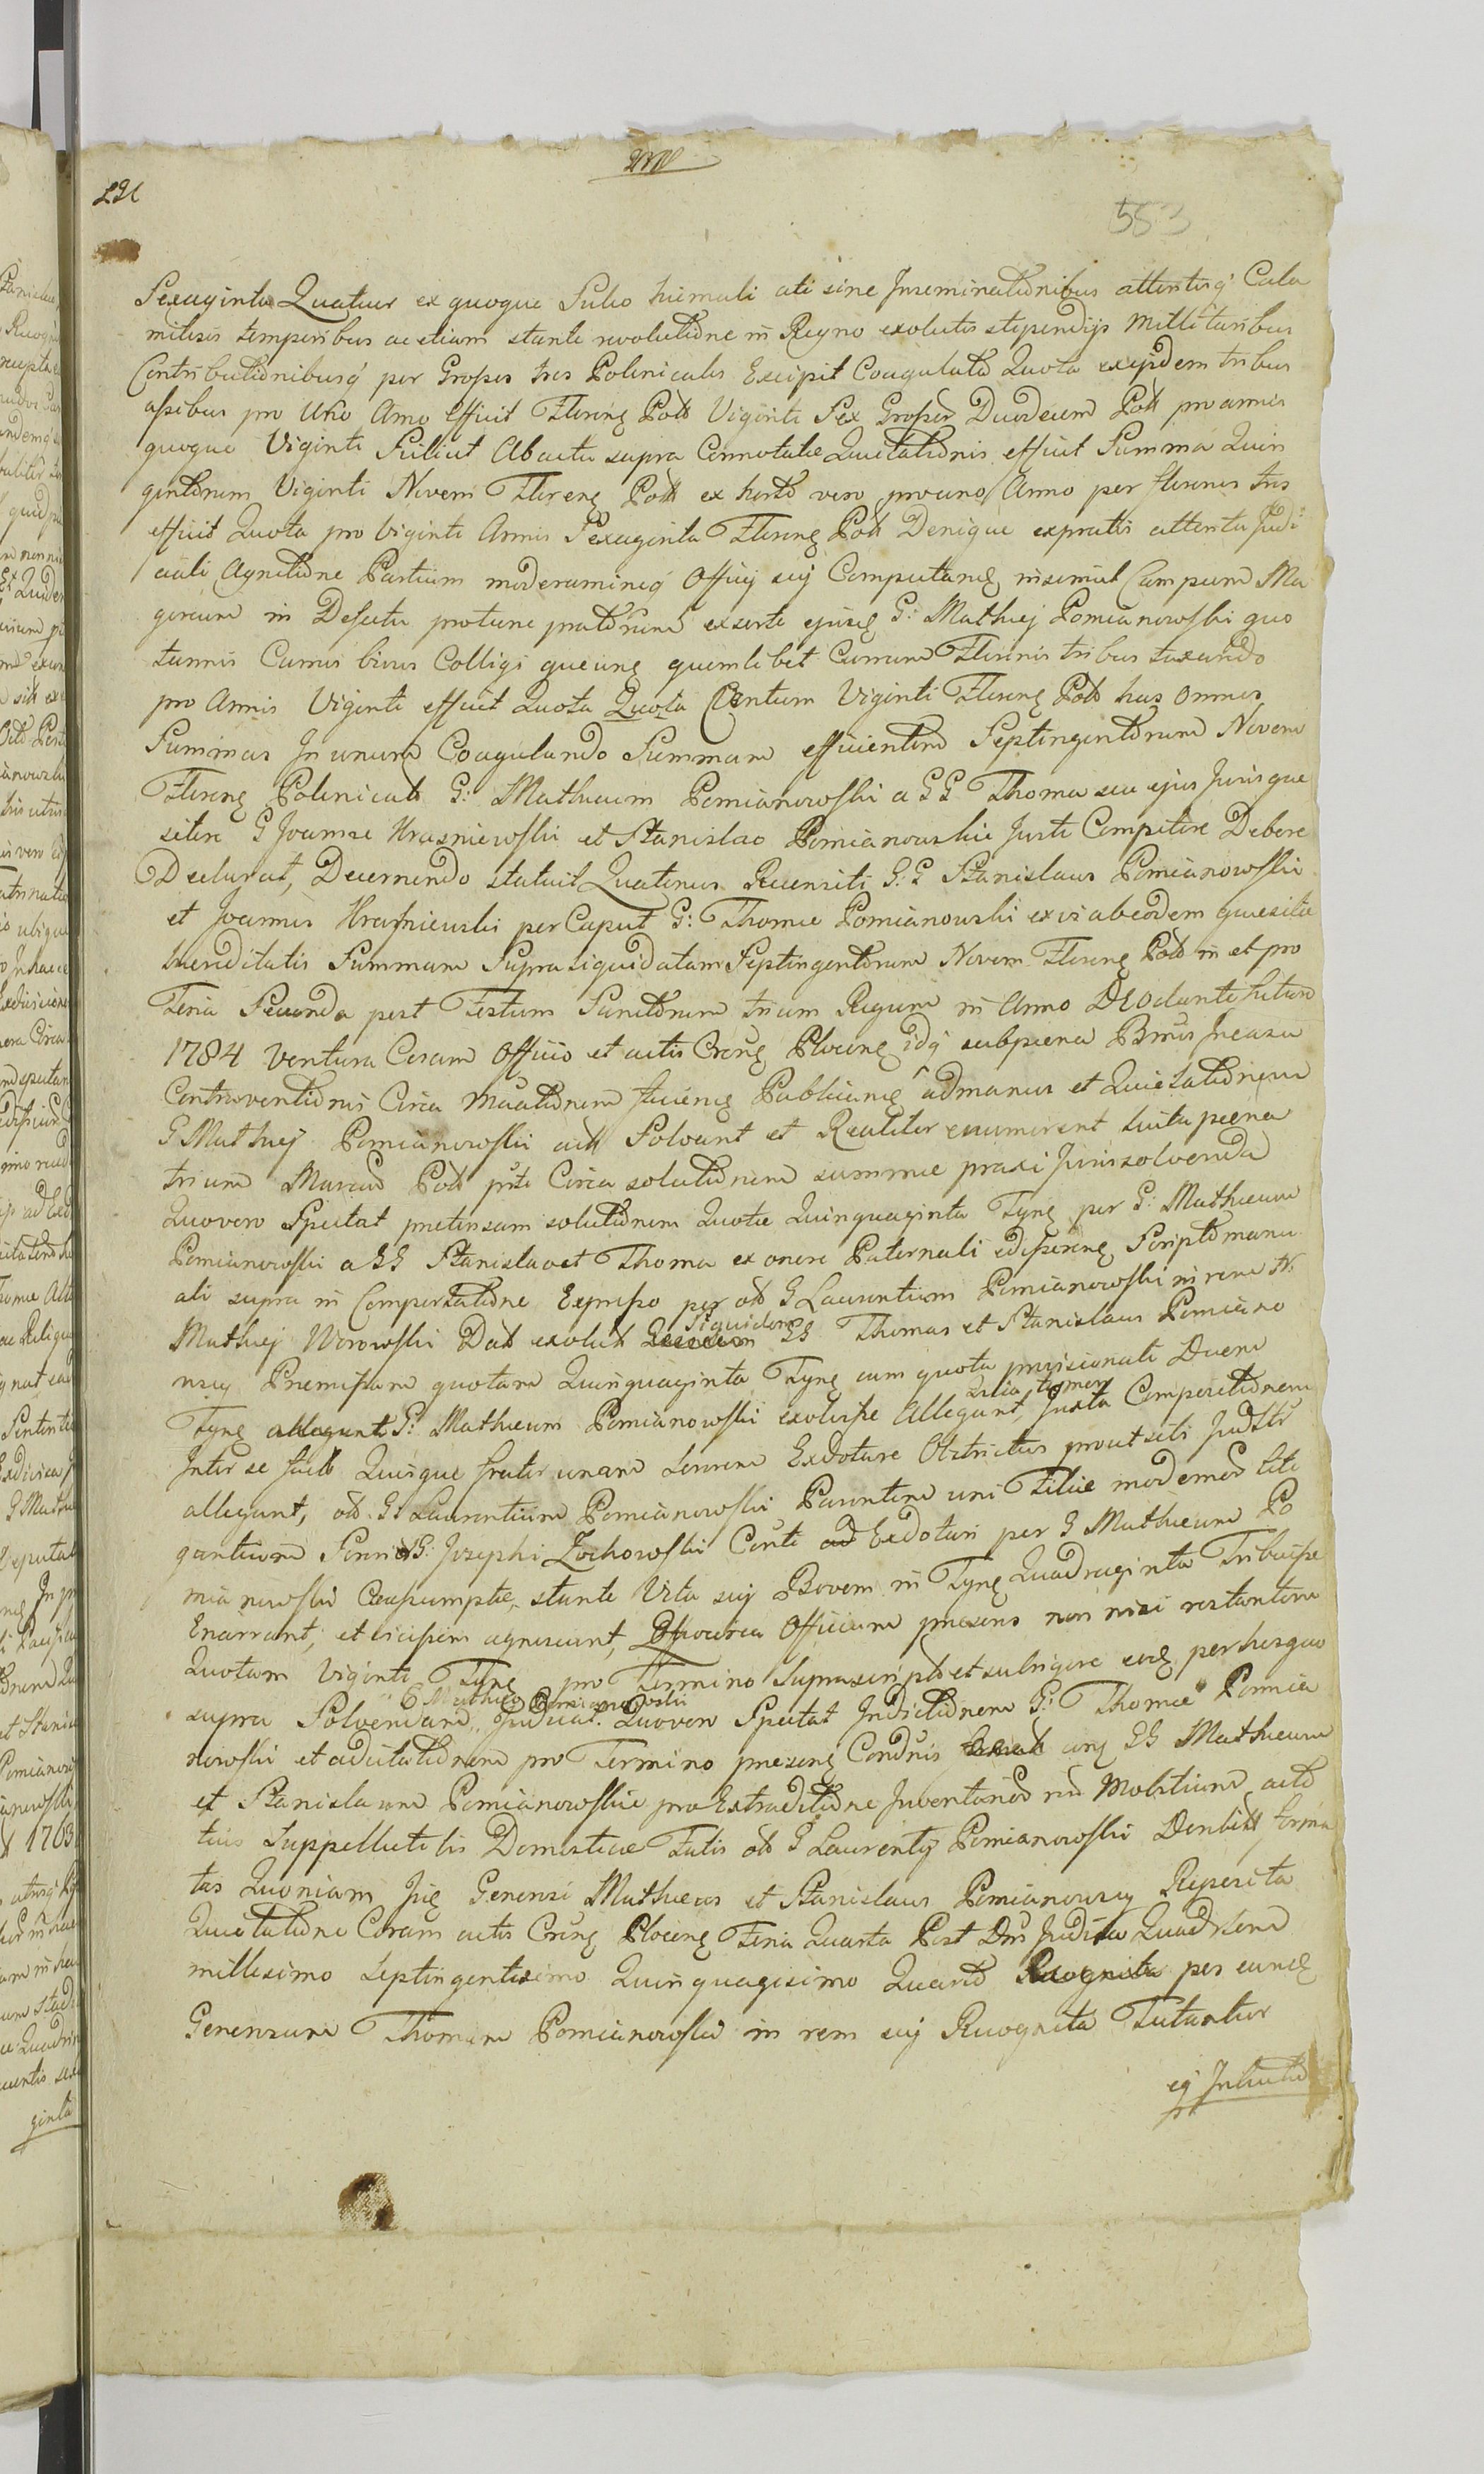 553
Sexaginta Quatuor ex quoque Sulco hiemali ali sine Inseminationibus attentisq Cala
mitosis temporibus ac etiam stante revolutione in Regno exolutis stipendijs Millitaribus
Contributionibusq per Grosses tres Polonicales Excipit Coagulatio Quota exijsdem tribus
assibus pro Uno Anno Efficit Floreng Poll Viginti Sex Grosses Duodecim Poll pro annis
quoque Viginti Scilicet Ab actu supra Connotatae Quietationis efficit Summa Quin
gentorum Viginti Novem Floreng Poll ex horto vero pro uno Anno per florenos tres
efficit Quota pro Viginti Annis Sexaginta Floreng Poll Denique ex pratis attenta Judi
ciali Agnitione Partium moderamineq Officij sui Computang in simul Campum Ma
gercum in Defectu protunc pratorum ex sorte ejusg G: Mathiej Pomianowski quo
tannis Currus binos Colligi queung quemlibet Currum Florenis tribus taxando
pro Annis Viginti efficit Quota Quota Centum Viginti Floreng Poll has omnes
Summas In unam Coagulando Summam efficientem Septingentorum Novem
Floreng Polonicalt G: Mathaeum Pomianowski a GG Thoma seu ejus Juris que
sitore G Joanne Krasniewski et Stanislao Pomianowskie Juste Competere Debere
Declarat, Decernendo statuit Quatenus Recensiti G: G Stanislaus Pomianowski
et Joannes Krasniewski per Caput G: Thomae Pomianowski ex vi ab eodem quaesitae
haereditatis Summam Supra liquidatam Septingentorum Novem Floreng Poll in et pro
Feria Secunda post Festum Sanctorum trium Regum in Anno DEO dante futuro
1784 ventura Coram Officio et actis Creng Ploceng idq sub poena Bnnis In casu
Controventionis Circa Muationem facieng Publicang ad manus et Quietationem
G Mathiej Pomianowski act Solvant et Realiter enumerent luita poena
trium Marcar Poll prte Circa solutionem summae praxi Juris solvenda
Quo vero Spectat pretensam solutionem Quotae Quinquaginta Tyng per G: Mathaeum
Pomianowski a GG Stanislao et Thoma ex onere Paternali Scripto manu
ali supra in Comportatione Expresso per ol G Laurentium Pomianowski in rem N.
Mathiej Worowski Dat exolut Siquidem GG Thomas et Stanislaus Pomiano
wscy Premissam quotam Quinquaginta Tyng cum quota provisionali Duem
Tyng allegunt G: Mathaeum Pomianowski exolvisse Allegant, Quia tamen Juxta Compositionem
Inter se factt Quisque frater unam sororem Exdotare Obstrictus prout seti
allegunt, ol. G: Laurentium Pomianowski Parentem uni Filiae modernor liti
gantium Sorori G: Josephi Zochowski Conti ad Exdotari per G Mathaeum Po
mianowski Creasumptae, stante Vita sui Bovem in Tyng Quadraginta Tribuisse
Enarrant, et vicissim agnoscunt, Officium presens non nisi restantem
Quotam Viginti Tyng pro Termino Suprascripto et sub rigore per hosquo
supra Solvendam, G Mathiej Pomianowski Judicat. Quo vero Spectat Indictionem G: Thomae Pomia
nowski et adcitationem pro Termino preseng Condnis cong GG Mathaeum
et Stanislaum Pomianowskie pro Extraditione Inventarior rer Mobilium acto
tius Suppellectilis Domesticae Fatis ol G Laurentij Pomianowski Derelictt forma
tor Quoniam Jig Generosi Mathaeus et Stanislaus Pomianowscy Reposita
Quietatione Coram actis Creng Ploceng Feria Quarta Post Dnis Judica Quadrlem
millesimo Septingentesimo Quinquagesimo Quarto Recognita per eundg
Generosum Thomam Pomianowski in rem sui Recognita Tutantur